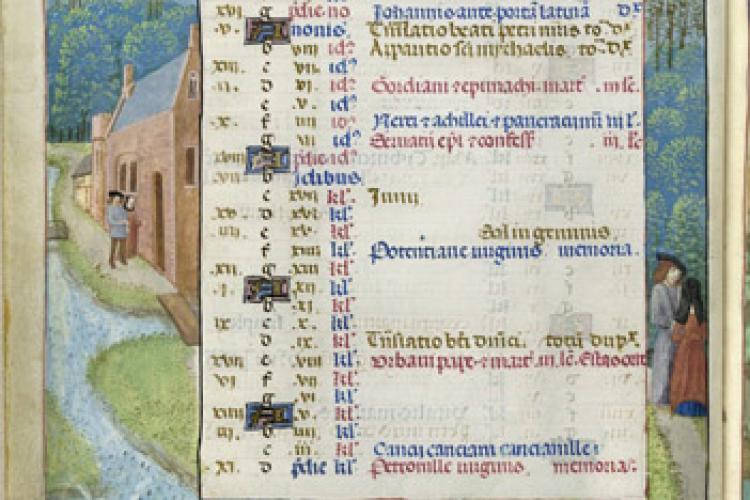 xvi g pdie no Johannis ante portā latinā dx
v nonis Tnslatio beati petri mris to dx
b viii id9 Apparitio sci mychaelis to dx
xiii c vii id9
ii d vi id9 Gordiani ⁊ epimachi mart m lc
e v id9
x f iiii id9 Nerei ⁊ achillei ⁊ pancracii m iii l
g iii id9 Seruani epi ⁊ confess iii lc
xviii pdie id9
vii b Idibus
c xvii kl Junii
xv d xvi kl
iiii e xv kl Sol in geminis
f xiiii kl Potentiane uirginis memoria
xii g xiii kl
i
b xi kl
ix c x kl
d ix kl Tnslatio bti dnici totū dupx
xvii e viii kl Urbani pape ⁊ mart m lc
vi f vii kl
g vi kl
xiiii v kl
iii b iiii kl
c iii kl Canci canciani cancianille
xi d pdie kl Petronille uirginis memoria